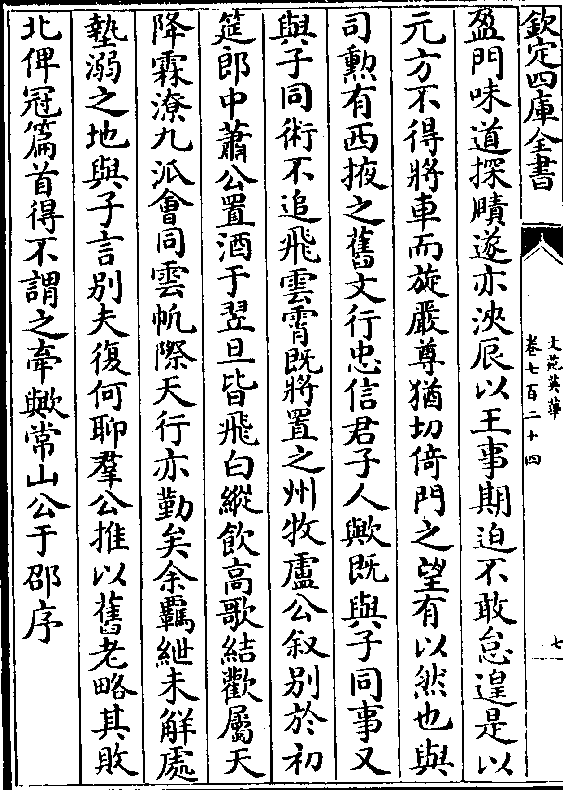 欽定四庫全書
文苑英華
卷七百二十四
七
盈門味道探賾遂亦浹辰以王事期迫不敢怠遑是以
元方不得將車而旋嚴尊猶切倚門之望有以然也與
司勲有西掖之舊文行忠信君子人歟既與子同事又
與子同術不追飛雲霄既將置之州牧盧公叙别於初
筵郎中蕭公置酒于翌旦皆飛白縱飲高歌結歡屬天
降霖潦九派會同雲帆際天行亦勤矣余覊紲未解處
墊溺之地與子言别夫復何聊羣公推以舊老略其敗
北俾冠篇首得不謂之牽歟常山公于邵序